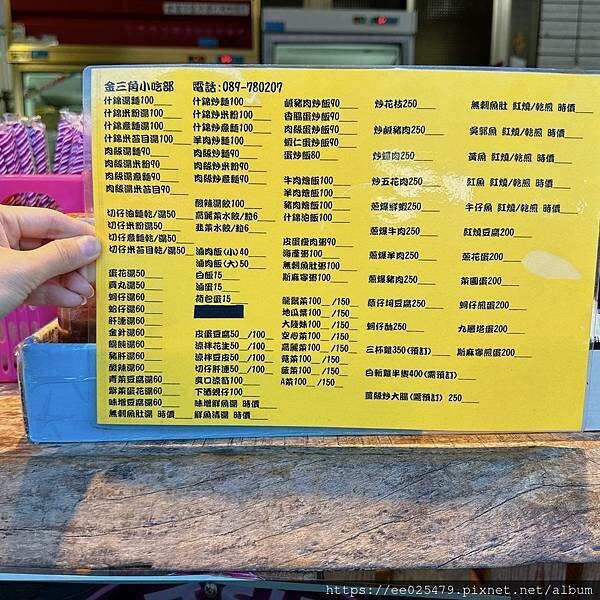 金三角小吃部 電話:089-780207
什錦湯麵100
什錦米粉湯100
什錦意麵湯100
什錦米苔目湯100
肉絲湯麵90
肉絲湯米粉90
肉絲湯意麵90
肉絲湯米苔目90
切仔油麵乾/湯50
切仔米粉湯50
切仔意麵乾/湯50
切仔米苔目乾/湯50
蛋花湯50
貢丸湯50
蚵仔湯60
蛤仔湯60
肝連湯60
金針湯60
餛飩湯60
豬肝湯60
酸辣湯60
青菜豆腐湯60
紫菜蛋花湯60
味噌豆腐湯60
無刺魚肚湯 時價
什錦炒麵100
什錦炒米粉100
什錦炒意麵100
羊肉炒麵100
肉絲炒麵100
肉絲炒米粉90
肉絲炒意麵90
酸辣湯餃100
高麗菜水餃/粒6
韭菜水餃/粒6
滷肉飯(小)40
滷肉飯(大)50
白飯15
滷蛋15
荷包蛋15
皮蛋豆腐50__/100
涼拌花生50__/100
涼拌豆皮50__/100
切仔肝連50__/100
爽口涼筍100
下酒蜆仔100
味噌鮮魚湯 時價
鮮魚清湯 時價
鹹豬肉炒飯90
香腸蛋炒飯90
肉絲蛋炒飯90
蝦仁蛋炒飯90
蛋炒飯80
牛肉燴飯100
羊肉燴飯100
豬肉燴飯100
什錦燴飯100
皮蛋瘦肉粥90
海產粥100
無刺魚肚粥100
斯麻寧粥100
龍鬚菜100__/150
地瓜葉100__/150
大陸妹100__/150
空心菜100__/150
高麗菜100__/150
菠菜100__/150
A菜100__/150
炒花枝250
炒鹹豬肉250
炒螺肉250
炒五花肉250
蔥爆鮮蝦250
蔥爆牛肉250
蔥爆羊肉250
蔥爆豬肉250
蔭仔蚵豆腐250
蚵仔酥250
三杯雞350(預訂)
白斬雞半隻400(需預訂)
薑絲炒大腸(需預訂) 250
無刺魚肚 紅燒/乾煎 時價
吳郭魚 紅燒/乾煎 時價
黃魚 紅燒/乾煎 時價
紅魚 紅燒/乾煎 時價
牛仔魚 紅燒/乾煎 時價
紅燒豆腐200
蔥花蛋200
菜圃蛋200
蚵仔煎蛋200
九層塔蛋200
斯麻寧煎蛋200
https://ee025479.pixnet.net/album